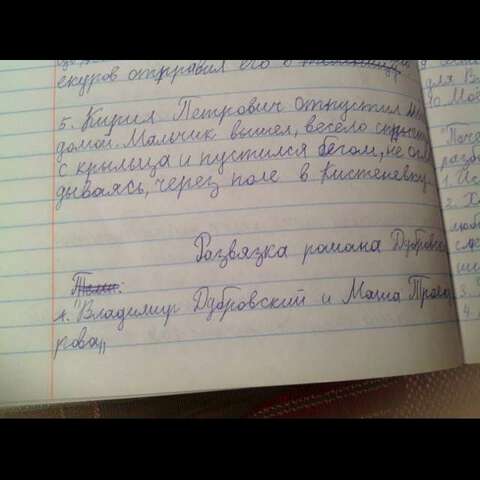 екуров отправил его в
5. Кирил Петрович отпустил
домой. Мальчик вышел, весело
с крыльца и пустился бегом, не огля
дываясь, через поле в Кистеневку.
Развязка романа Дубровск
Темы:
1. "Владимир Дубровский и Маша Трое
рова„
для В
До Мос
"Поче
разб
1. Ис
2. Ха
люб
3.
4.